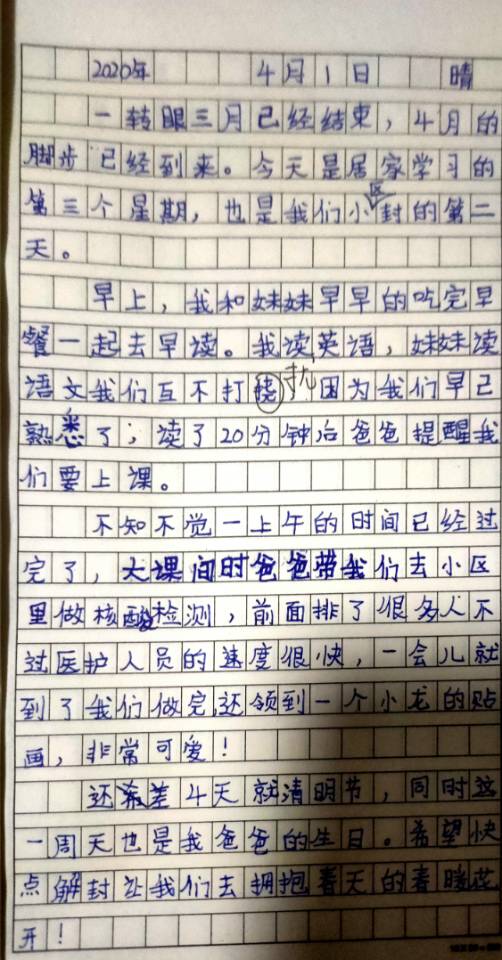 2020年 4月1日 晴
一转眼三月已经结束，4月的
脚步已经到来。今天是居家学习的
第三个星期，也是我们小区封的第二
天。
早上，我和妹妹早早的吃完早
餐一起去早读。我读英语，妹妹读
语文我们互不打扰因为我们早已
熟悉了；读了20分钟后爸爸提醒我
们要上课。
不知不觉一上午的时间已经过
完了，大课间时爸爸带我们去小区
里做核酸检测，前面排了很多人不
过医护人员的速度很快，一会儿就
到了我们做完还领到一个小龙的贴
画，非常可爱！
还差4天就清明节，同时这
一周天也是我爸爸的生日。希望快
点解封让我们去拥抱春天的春暖花
开！